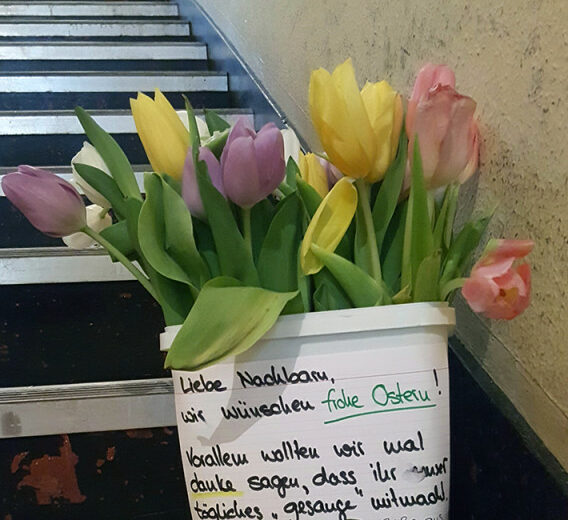 Liebe Nachbarn,
wir wünschen frohe Ostern!
Vorallem wollten wir mal
danke sagen, dass ihr unser
tägliches „gesange" mitmacht.